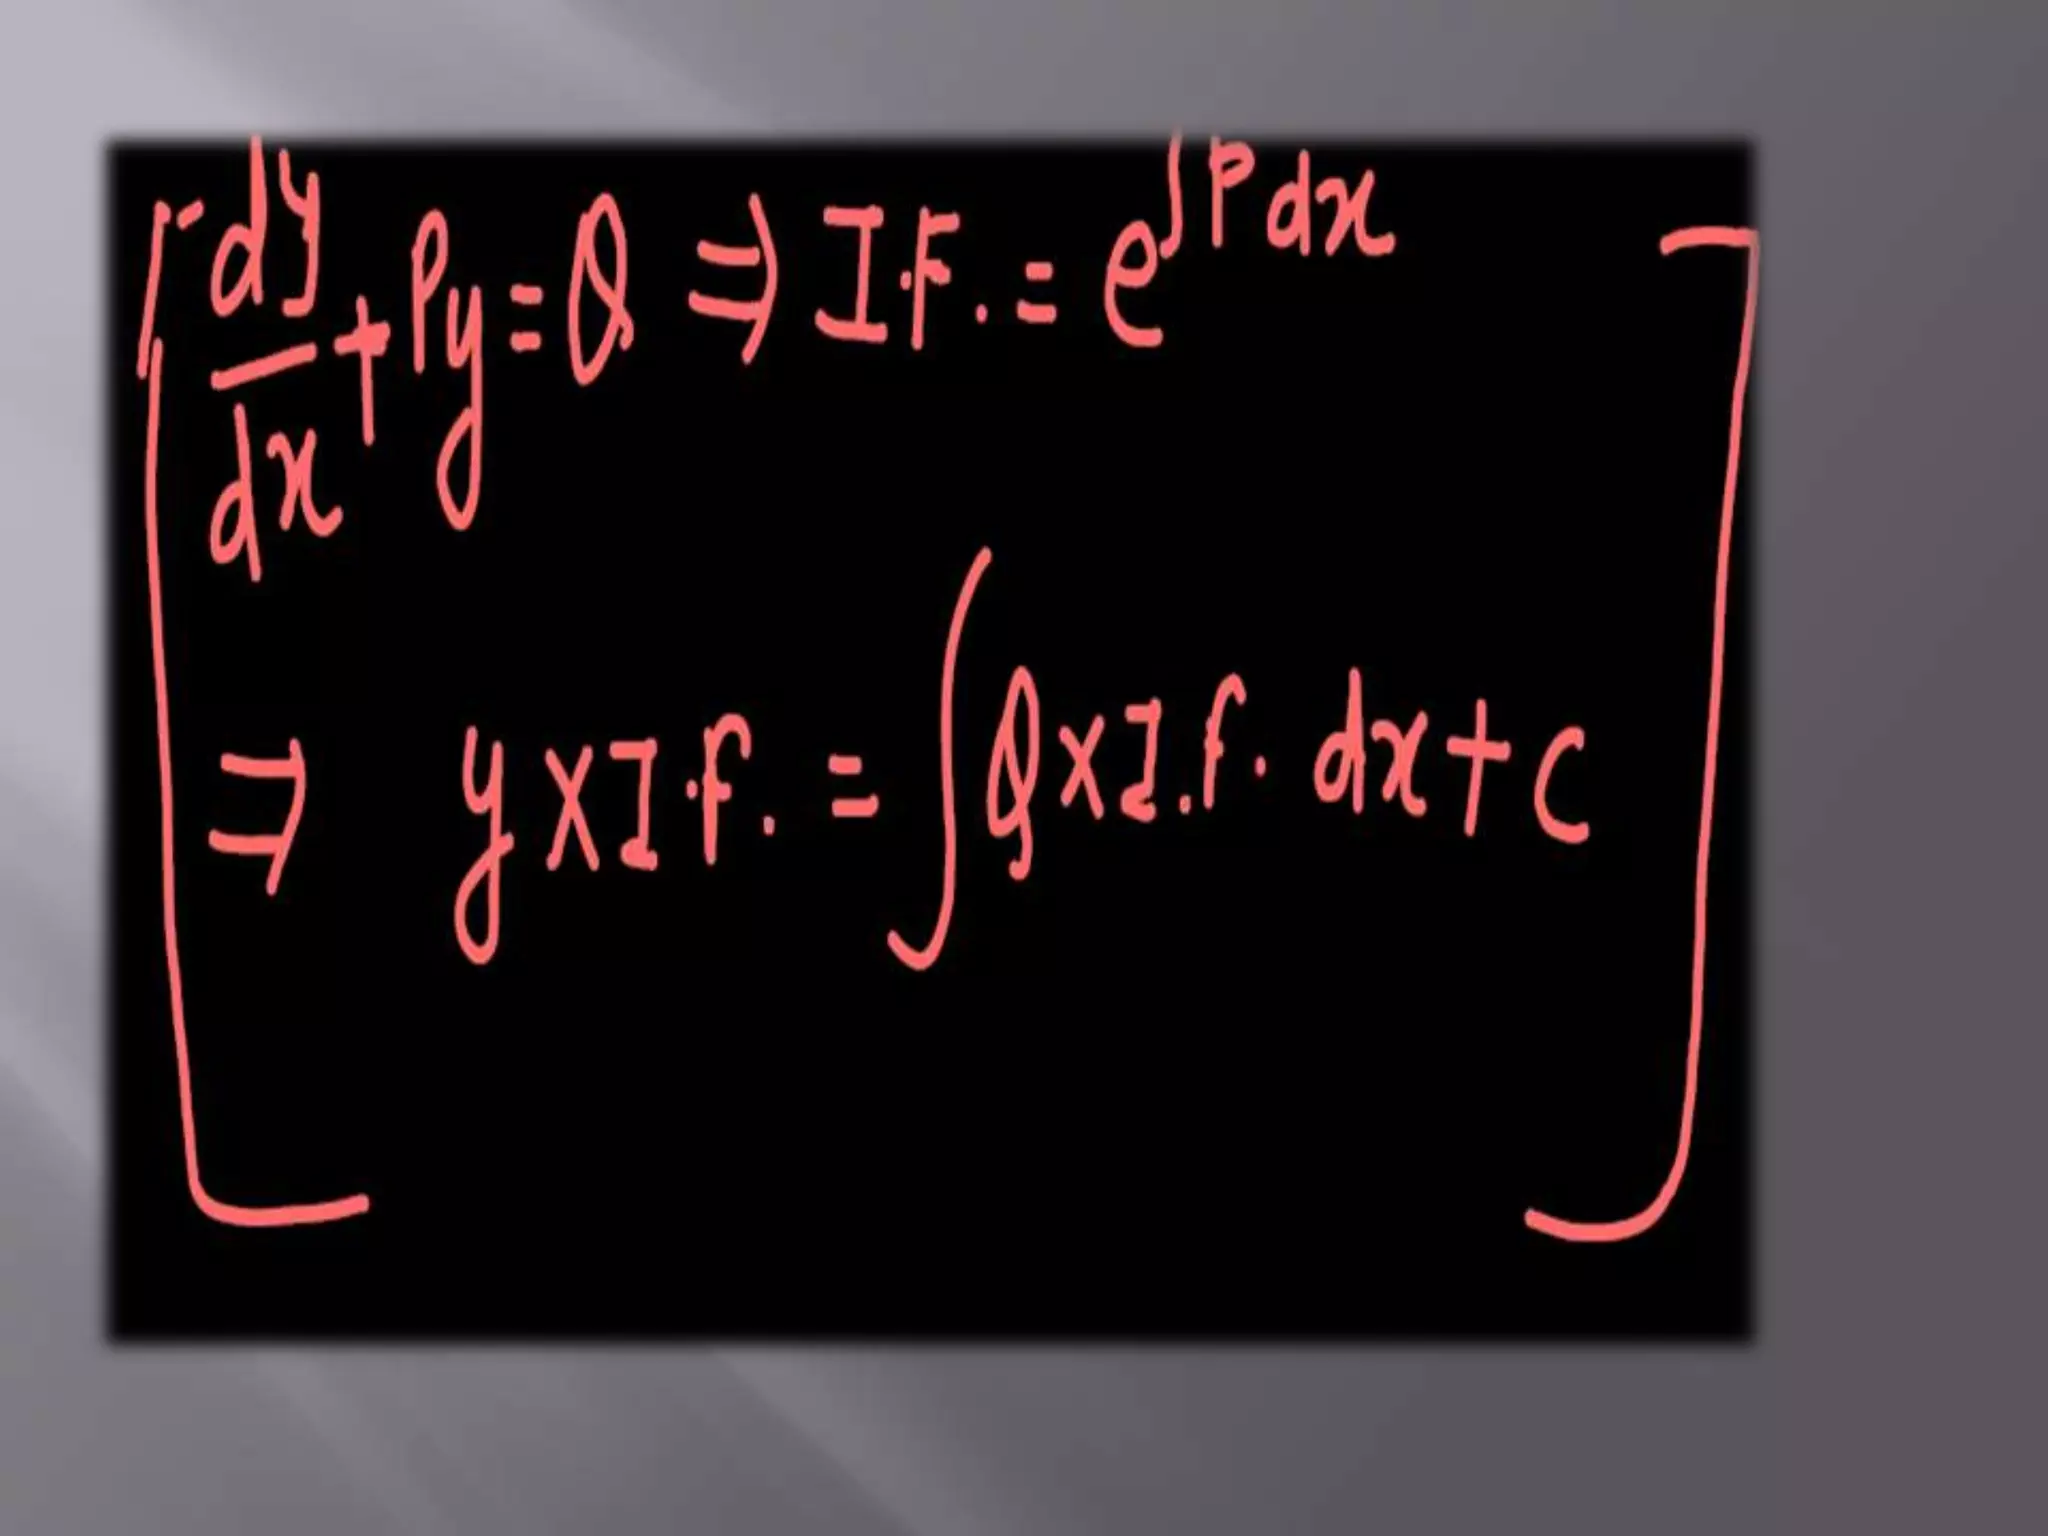 dy/dx + Py = Q ⇒ I.F. = e^∫P dx
⇒ y × I.F. = ∫ Q × I.F. dx + c